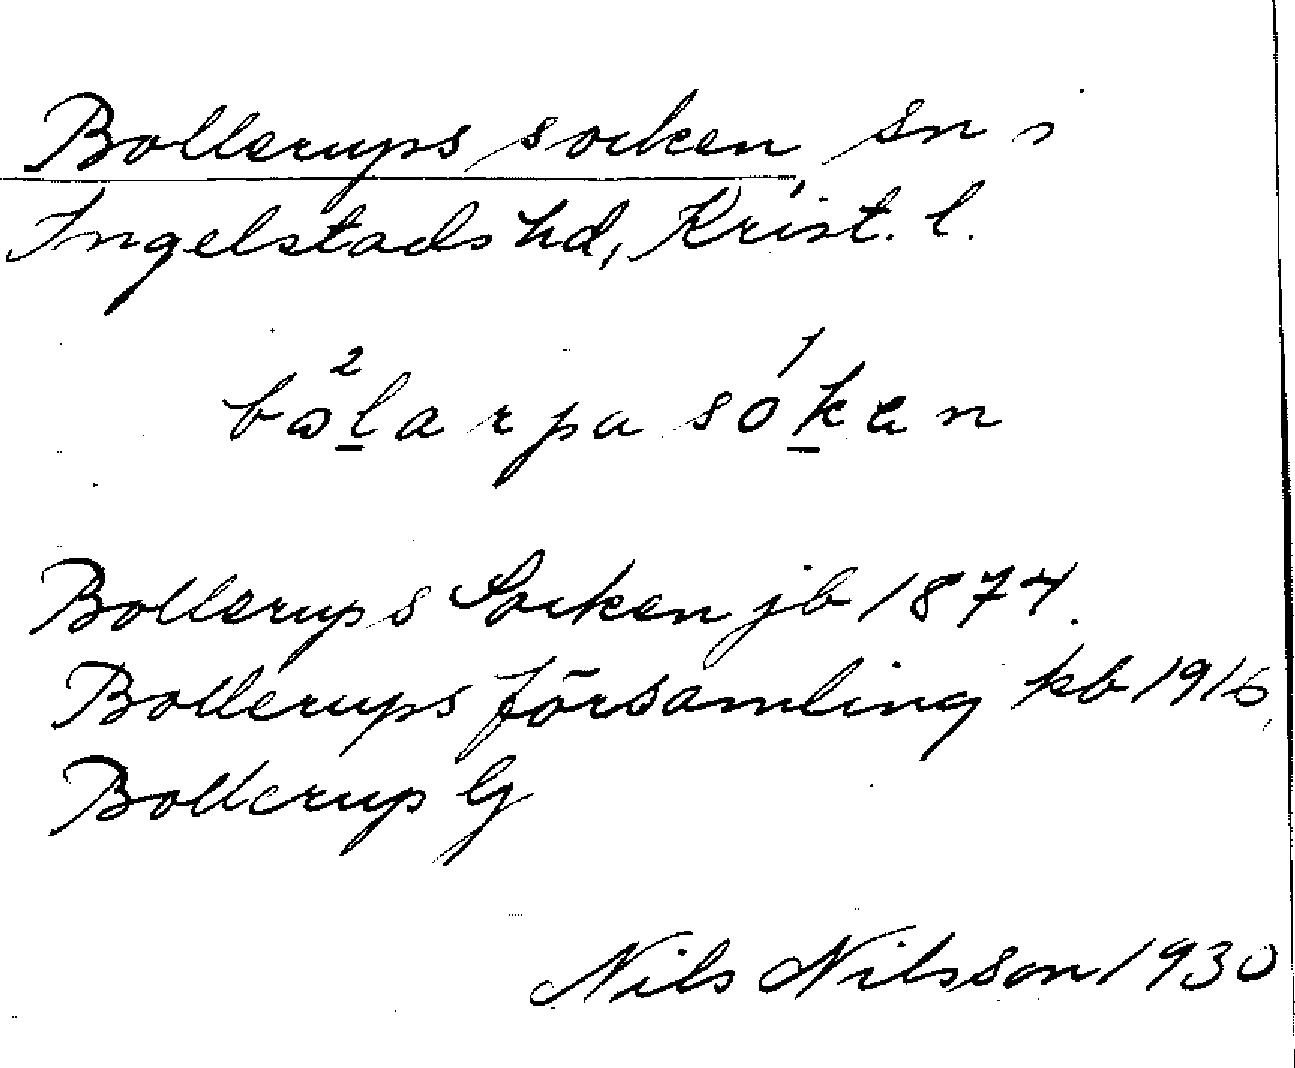 Bollerups socken, sn i
Ingelstads hd, Krist. l.
bo²l̲arpa só¹k̲en
Bollerups Socken jb 1874.
Bollerups församling kb 1916,
Bollerup G
Nils Nilsson 1930